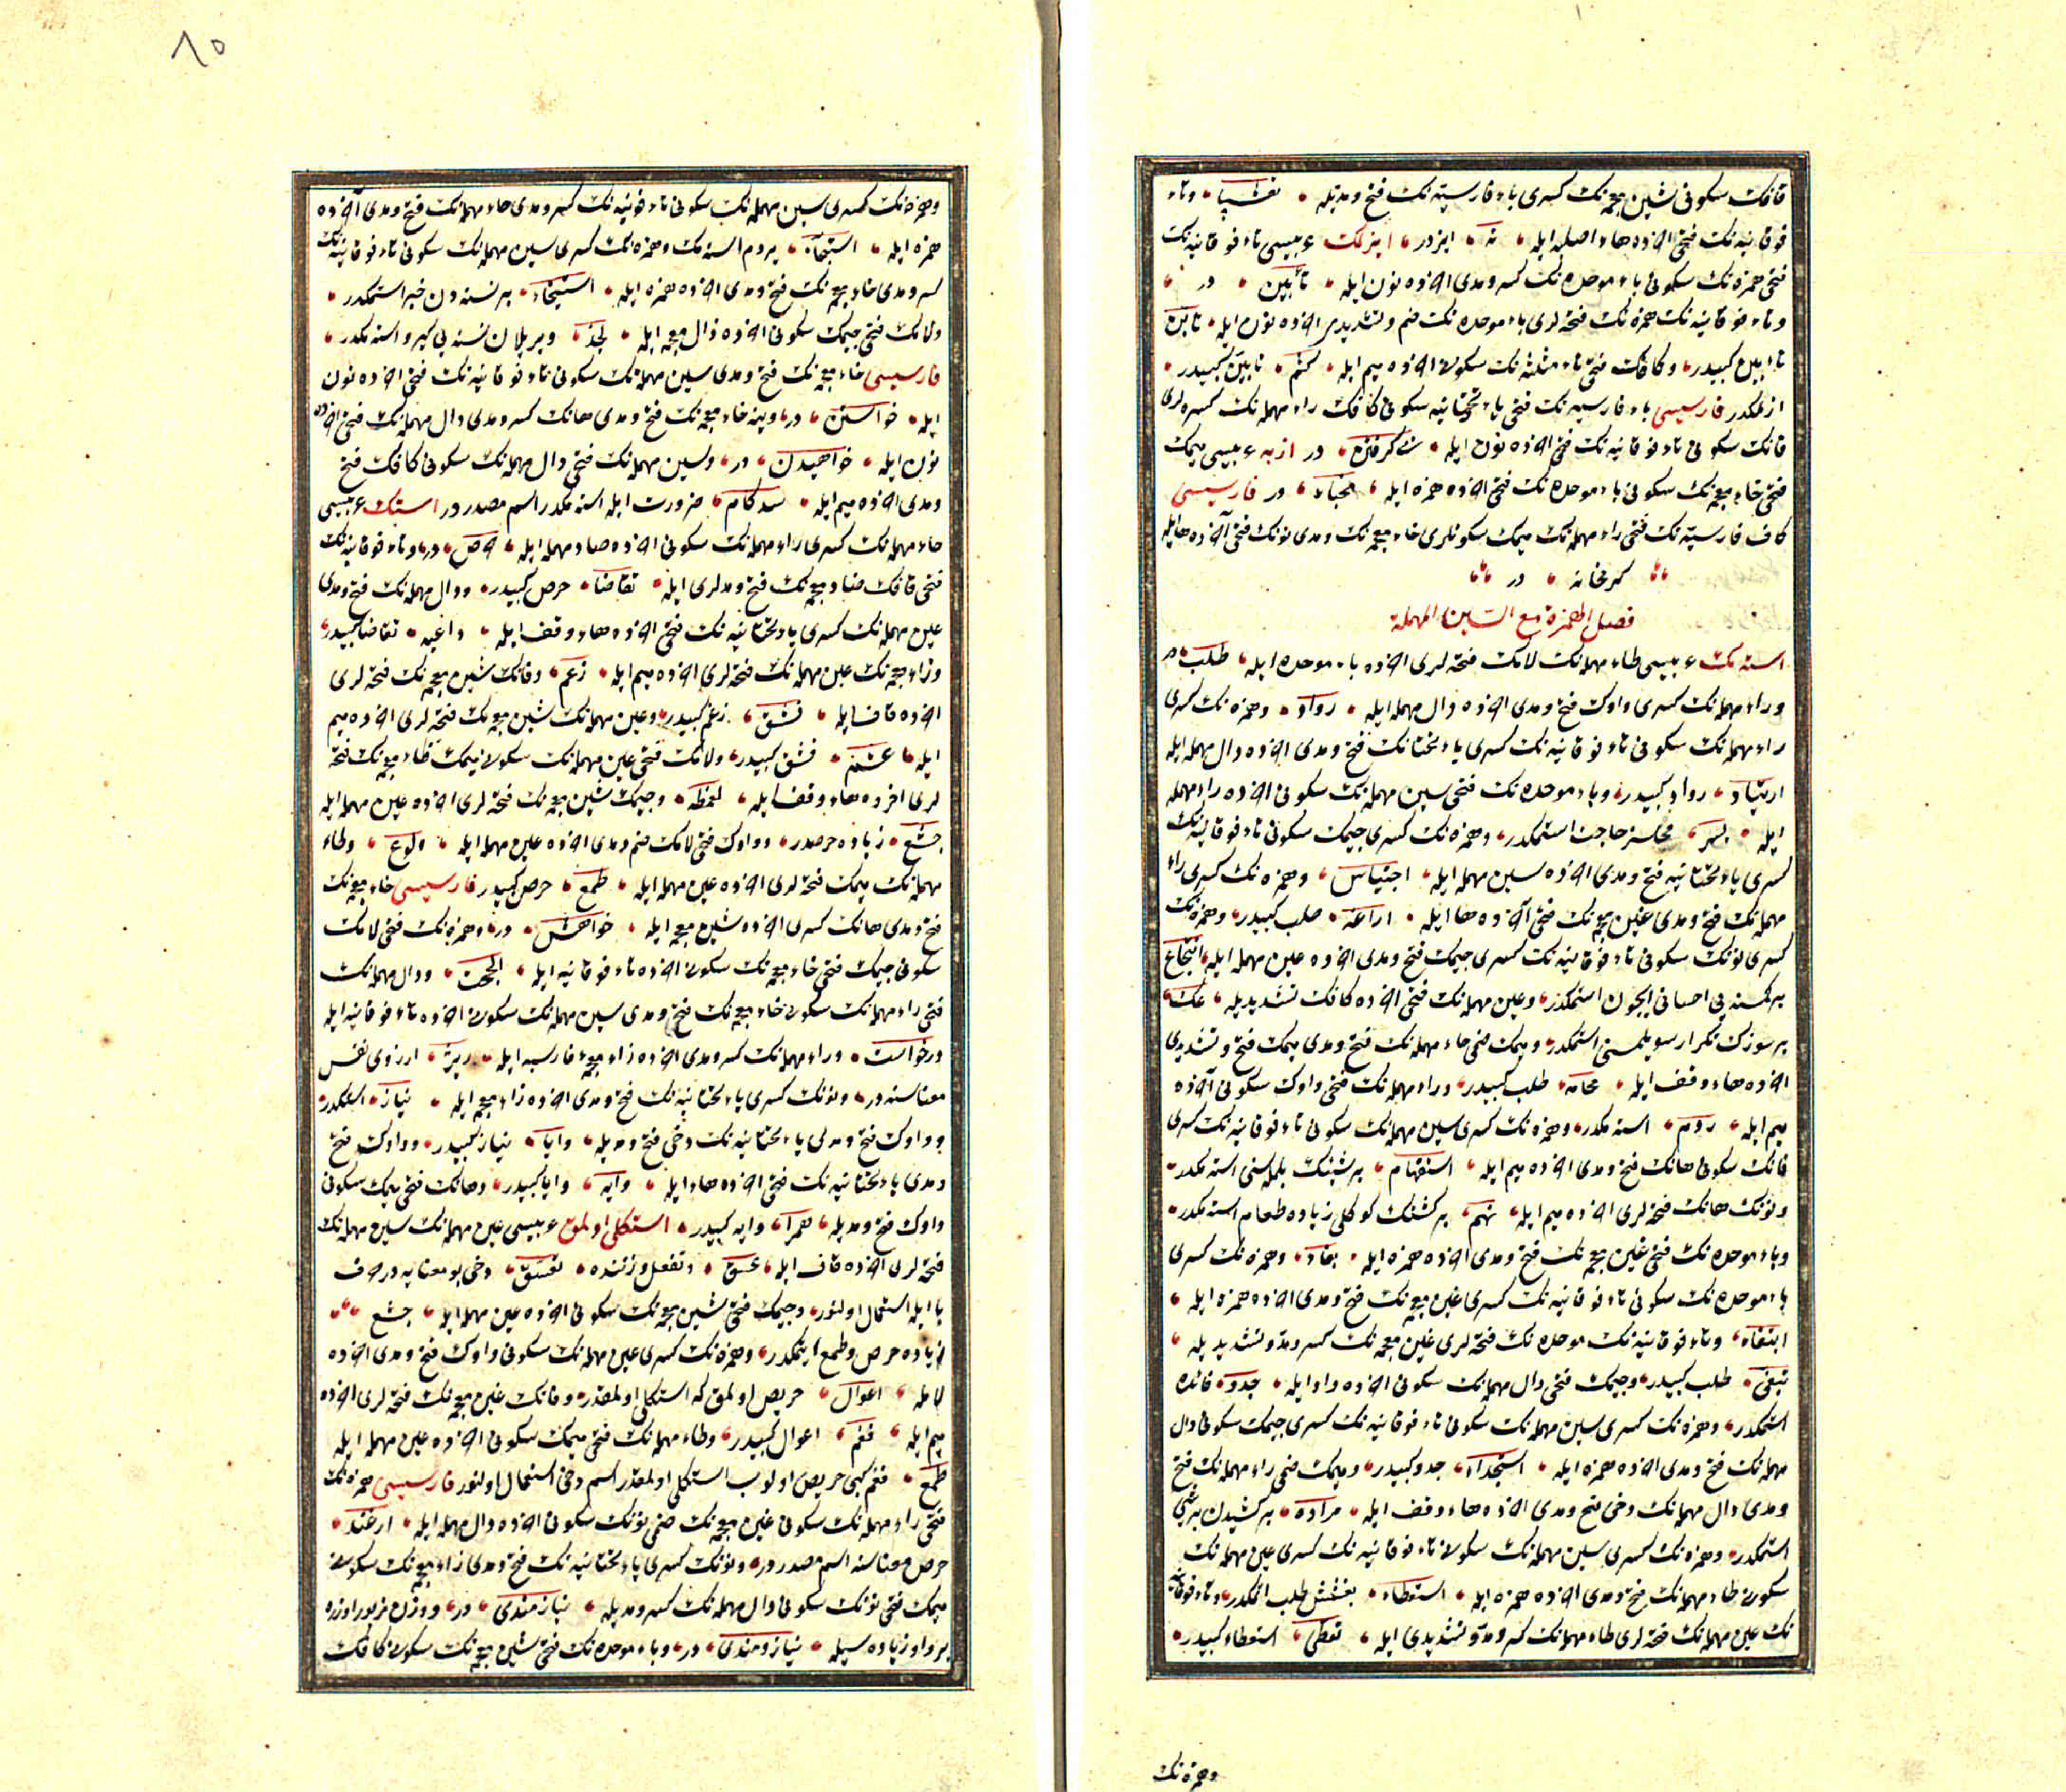 قافك سكونى شين معجمه نك كسرى باء فارسيه نك فتح و مديله نقشپا وتاء
فوقانيه نك فتحى اخرده هاء اصليه ايله ته ايزدر ايزلك عربيسى تاء فوقانيه نك
فتحى همزه نك سكونى باء موحده نك كسر ومدى اخرده نون ايله تأبين در
وتاء فوقانيه نك همزه نك فتحه لرى باء موحده نك ضم وتشديدى اخرده نون ايله تأبن
تأبين كبيدر وكافك فتحى ثاء مثلثه نك سكونى اخرده ميم ايله كثم تأبين كبيدر
ازلمكدر فارسيسى باء فارسيه نك فتحى ياء تحتانيه سكونى كافك راء مهمله نك كسره لرى
فانك سكونى تاء فوقانيه نك فتحى اخرده نون ايله پى كرفتن در ازبه عربيسى ميمك
فتحى خاء معجمه نك سكونى باء موحده نك فتحى اخرده همزه ايله مخباء در فارسيسى
كاف فارسيه نك فتحى راء مهمله نك ميمك سكونلرى خاء معجمه نك ومدى نونك فتحى آخرده ها ايله
كرمخانه در
فصل الهمزة مع السين المهملة
استه مك عربيسى طاء مهمله نك لامك فتحه لرى اخرده باء موحده ايله طلب در
وراء مهمله نك كسرى واوك فتح ومدى اخرده دال مهمله ايله رواد وهمزه نك كسرى
راء مهمله نك سكونى تاء فوقانيه نك كسرى ياء تحتانك فتح ومدى اخرده دال مهمله ايله
ارتياد رواد كبيدر وباء موحده نك فتحى سين مهمله نك سكونى اخرده راء مهمله
ايله بسر محلسز حاجت استمكدر وهمزه نك كسرى جيمك سكونى تاء فوقانيه نك
كسرى ياء تحتانيه فتح ومدى اخرده سين مهمله ايله اجتياس وهمزه نك كسرى راء
مهمله نك فتح ومدى غين معجمه نك فتحى آخرده ها ايله اراغه طلب كبيدر وهمزه نك
كسرى نونك سكونى تاء فوقانيه نك كسرى جيمك فتح ومدى اخرده عين مهمله ايله انتجاع
بر كمسنه يى احسانى ايچون استمكدر وعين مهمله نك فتحى اخرده كافك تشديديله عك
بر سوزك تكرار سويلمسنى استمكدر وميمك ضمى حاء مهمله نك فتح ومدى ميمك فتح وتشديدى
اخرده هاء وقف ايله محامه طلب كبيدر وراء مهمله نك فتحى واوك سكونى آخرده
ميم ايله روم استه مكدر وهمزه نك كسرى سين مهمله نك سكونى تاء فوقانيه نك كسرى
فانك سكونى هانك فتح ومدى اخرده ميم ايله استفهام بر شيئك بلمسنى استه مكدر
ونونك هانك فتحه لرى اخرده ميم ايله نهم بر كشنك كوكلى زياده طعام استه مكدر
وباء موحده نك فتحى غين معجمه نك فتح ومدى اخرده همزه ايله بغاء وهمزه نك كسرى
باء موحده نك سكونى تاء فوقانيه نك كسرى غين معجمه نك فتح ومدى اخرده همزه ايله
ابتغاء وتاء فوقانيه نك موحده نك فتحه لرى غين معجمه نك كسر ومد وتشديديله
تبغى طلب كبيدر وجيمك فتحى دال مهمله نك سكونى اخرده واو ايله جدو فائده
استمكدر وهمزه نك كسرى سين مهمله نك سكونى تاء فوقانيه نك كسرى جيمك سكونى دال
مهمله نك فتح ومدى اخرده همزه ايله استجداء جدو كبيدر وميمك ضمى راء مهمله نك فتح
ومدى دال مهمله نك دخى فتح ومدى اخرده هاء وقف ايله مراده بر شيدن بر شى
استمكدر وهمزه نك كسرى سين مهمله نك سكونى تاء فوقانيه نك كسرى عين مهمله نك
سكونى طاء مهمله نك فتح ومدى اخرده همزه ايله استعطاء بخشش طلب اتمكدر وتاء فوقانيه
نك عين مهمله نك فتحه لرى طاء مهمله نك كسر ومد وتشديدى ايله تعطى استعطاء كبيدر
وهمزه نك
٨٥
وهمزه نك كسرى سين مهمله نك سكونى تاء فوقانيه نك كسر ومدى حاء مهمله نك فتح ومدى آخرده
همزه ايله استيحاء يردم استه مك وهمزه نك كسرى سين مهمله نك سكونى تاء فوقانيه نك
كسر ومدى خاء معجمه نك فتح ومدى اخرده همزه ايله استيخاء بر نسنه دن خبر استمكدر
ولامك فتحى جيمك سكونى اخرده ذال معجمه ايله لجذ ويريلان نسنه يى كيرو استه مكدر
فارسيسى خاء معجمه نك فتح ومدى سين مهمله نك سكونى تاء فوقانيه نك فتحى اخرده نون
ايله خواستن در وينه خاء معجمه نك فتح ومدى هانك كسر ومدى دال مهمله نك فتحى اخرده
نون ايله خواهيدن در وسين مهمله نك فتحى دال مهمله نك سكونى كافك فتح
ومدى اخرده ميم ايله سدكام ضرورت ايله استه مكدر اسم مصدر در استك عربيسى
حاء مهمله نك كسرى راء مهمله نك سكونى اخرده صاد مهمله ايله حرص در وتاء فوقانيه نك
فتحى قافك ضاد معجمه نك فتح ومدلرى ايله تقاضا حرص كبيدر ودال مهمله نك فتح ومدى
عين مهمله نك كسرى ياء تحتانيه نك فتحى اخرده هاء وقف ايله داعيه تقاضا كبيدر
وزاء معجمه نك عين مهمله نك فتحه لرى اخرده ميم ايله زعم وفانك شين معجمه نك فتحه لرى
اخرده قاف ايله فشق زعم كبيدر وعين مهمله نك شين معجمه نك فتحه لرى اخرده ميم
ايله عشم فشق كبيدر ولامك فتحى عين مهمله نك سكونى ميمك ظاء معجمه نك فتحه
لرى اخرده هاء وقف ايله لعمظه وجيمك شين معجمه نك فتحه لرى اخرده عين مهمله ايله
جشع زياده حرصدر وواوك فتحى لامك ضم ومدى اخرده عين مهمله ايله ولوع وطاء
مهمله نك ميمك فتحه لرى اخرده عين مهمله ايله طمع حرص كبيدر فارسيسى خاء معجمه نك
فتح ومدى هانك كسرى اخرده شين معجمه ايله خواهش در وهمزه نك فتحى لامك
سكونى جيمك فتحى خاء معجمه نك سكونى اخرده تاء فوقانيه ايله الجخت ودال مهمله نك
فتحى راء مهمله نك سكونى خاء معجمه نك فتح ومدى سين مهمله نك سكونى اخرده تاء فوقانيه ايله
درخواست وراء مهمله نك كسر ومدى اخرده زاء معجمه فارسيه ايله ريژ ارزوى نفس
معناسنه در ونونك كسرى ياء تحتانيه نك فتح ومدى اخرده زاء معجمه ايله نياز استمكدر
وواوك فتح ومدى ياء تحتانيه نك دخى فتح ومديله وايا نياز كبيدر وواوك فتح
ومدى ياء تحتانيه نك فتحى اخرده هاء ايله وايه وايا كبيدر وهانك فتحى ميمك سكونى
واوك فتح ومديله همرا وايه كبيدر استكلى اولمق عربيسى عين مهمله نك سين مهمله نك
فتحه لرى اخرده قاف ايله عسق وتفعل وزننده تعسق دخى بو معنايه در حرف
با ايله استعمال اولنور وجيمك فتحى شين معجمه نك سكونى اخرده عين مهمله ايله جشع
زياده حرص وطمع ايتمكدر وهمزه نك كسرى عين مهمله نك سكونى واوك فتح ومدى اخرده
لام ايله اعوال حريص اولمق كه استكلى اولمقدر وفانك غين معجمه نك فتحه لرى اخرده
ميم ايله فغم اعوال كبيدر وطاء مهمله نك فتحى ميمك سكونى اخرده عين مهمله ايله
طمع فغم كبى حريص اولوب استكلى اولمقدر اسم دخى استعمال اولنور فارسيسى همزه نك
فتحى راء مهمله نك سكونى غين معجمه نك ضمى نونك سكونى اخرده دال مهمله ايله ارغند
حرص معناسنه اسم مصدر در ونونك كسرى ياء تحتانيه نك فتح ومدى زاء معجمه نك سكونى
ميمك فتحى نونك سكونى دال مهمله نك كسر ومديله نيازمندى در ووزن مزبور اوزره
بر واو زياده سيله نياز ومندى در وباء موحده نك فتحى شين معجمه نك سكونى كافك